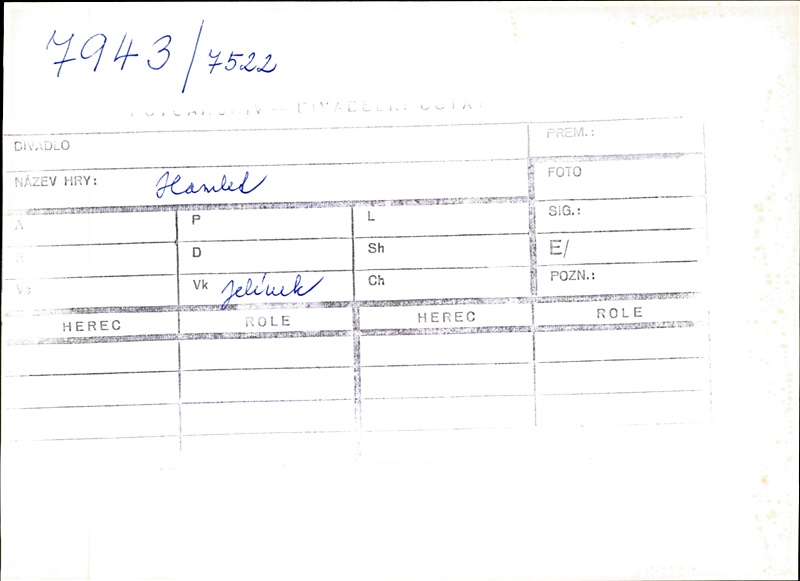 7943/7522
FOTOARCHIV – DIVADELNÍ ÚSTAV
DIVADLO
PREM.:
NÁZEV HRY: Hamlet
FOTO
A P L SIG.:
R D Sh E/
Vs Vk Jelínek Ch POZN.:
HEREC ROLE HEREC ROLE